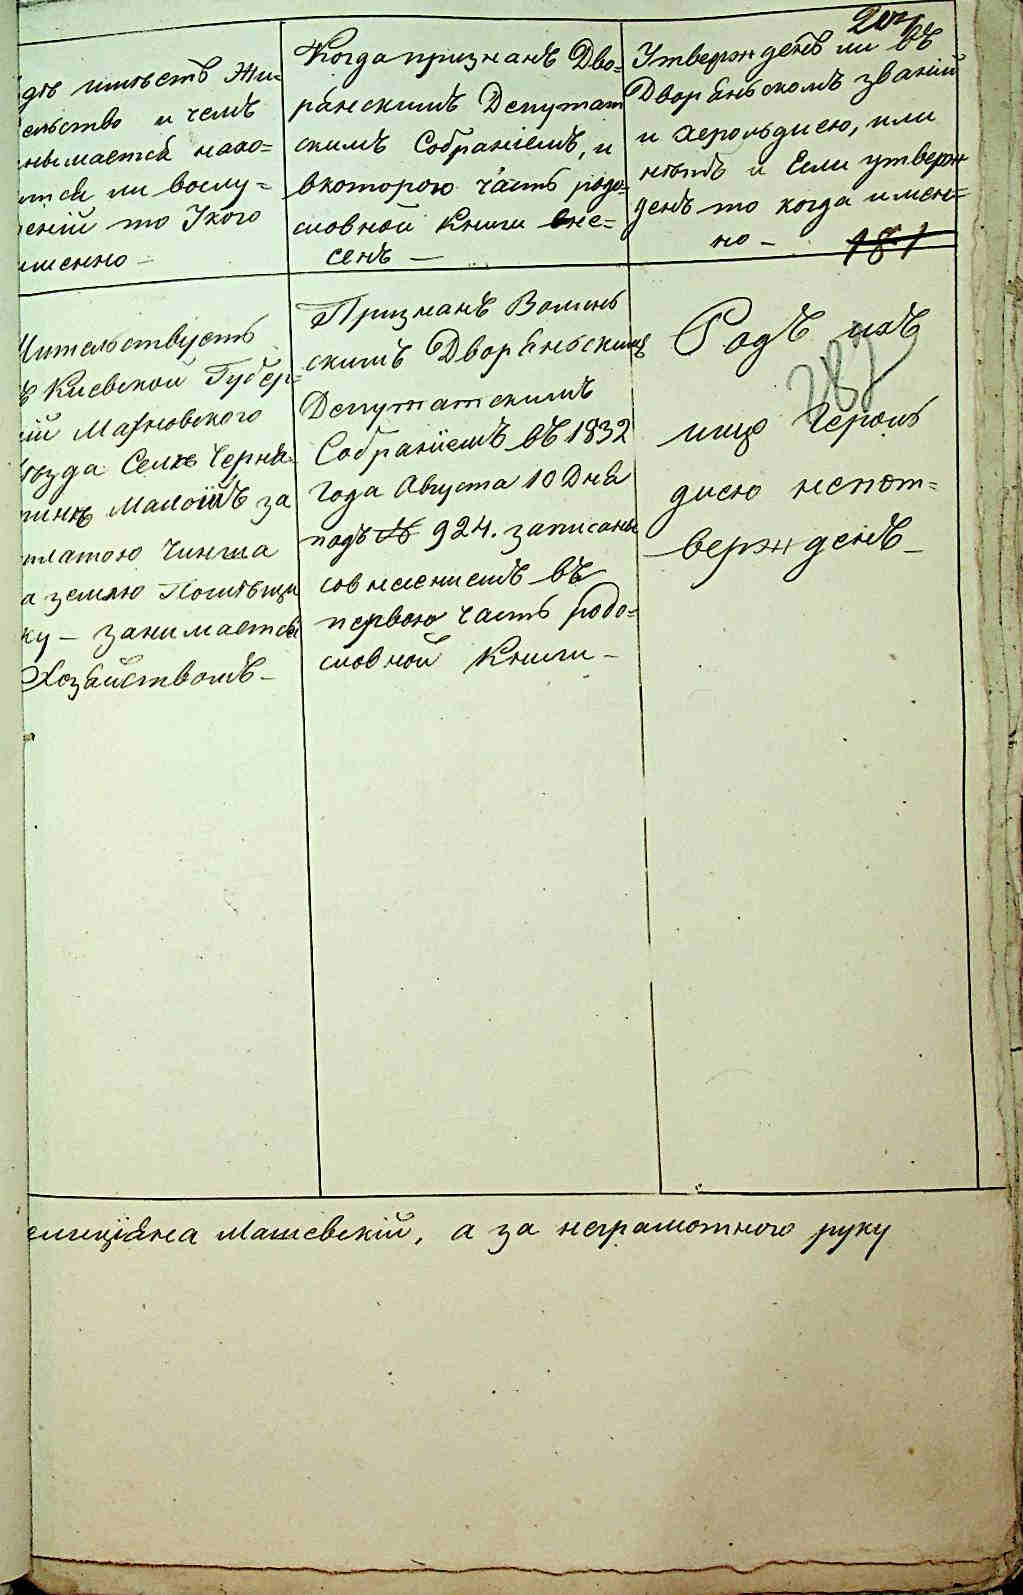 дѣ имѣетъ Жи-
ельство и чемъ
нымается нахо-
тся ли вослу-
еніи то Укого
именно —
Когда признанъ Дво-
рянскимъ Депутат
скимъ Собраніемъ, и
вкоторою часть родо-
словной Книги вне-
сенъ —
Утвержденъ ли въ
Дворяньскомъ званіи
и Херольдиею, или
нѣтъ и Если утверж
денъ то когда имен-
но —
181
Жительствуетъ
ъ Киевской Губер-
ніи Махновского
ѣзда Селѣ Черня
тинѣ Маломъ за
платою Чинша
а землю Помѣщи
ку — занимается
Хозяйствомъ —
Признанъ Волынь
скимъ Дворяньскимъ
Депутатскимъ
Собраніемъ въ 1832
Года Августа 10 Дня
подъ № 924. записаны
совнесениемъ въ
первою часть родо-
словной Книги —
Родъ ихъ
287
ище Герольдиею
дисю непот-
вержденъ —
елиціяна Машевскій, а за неграмотного руку